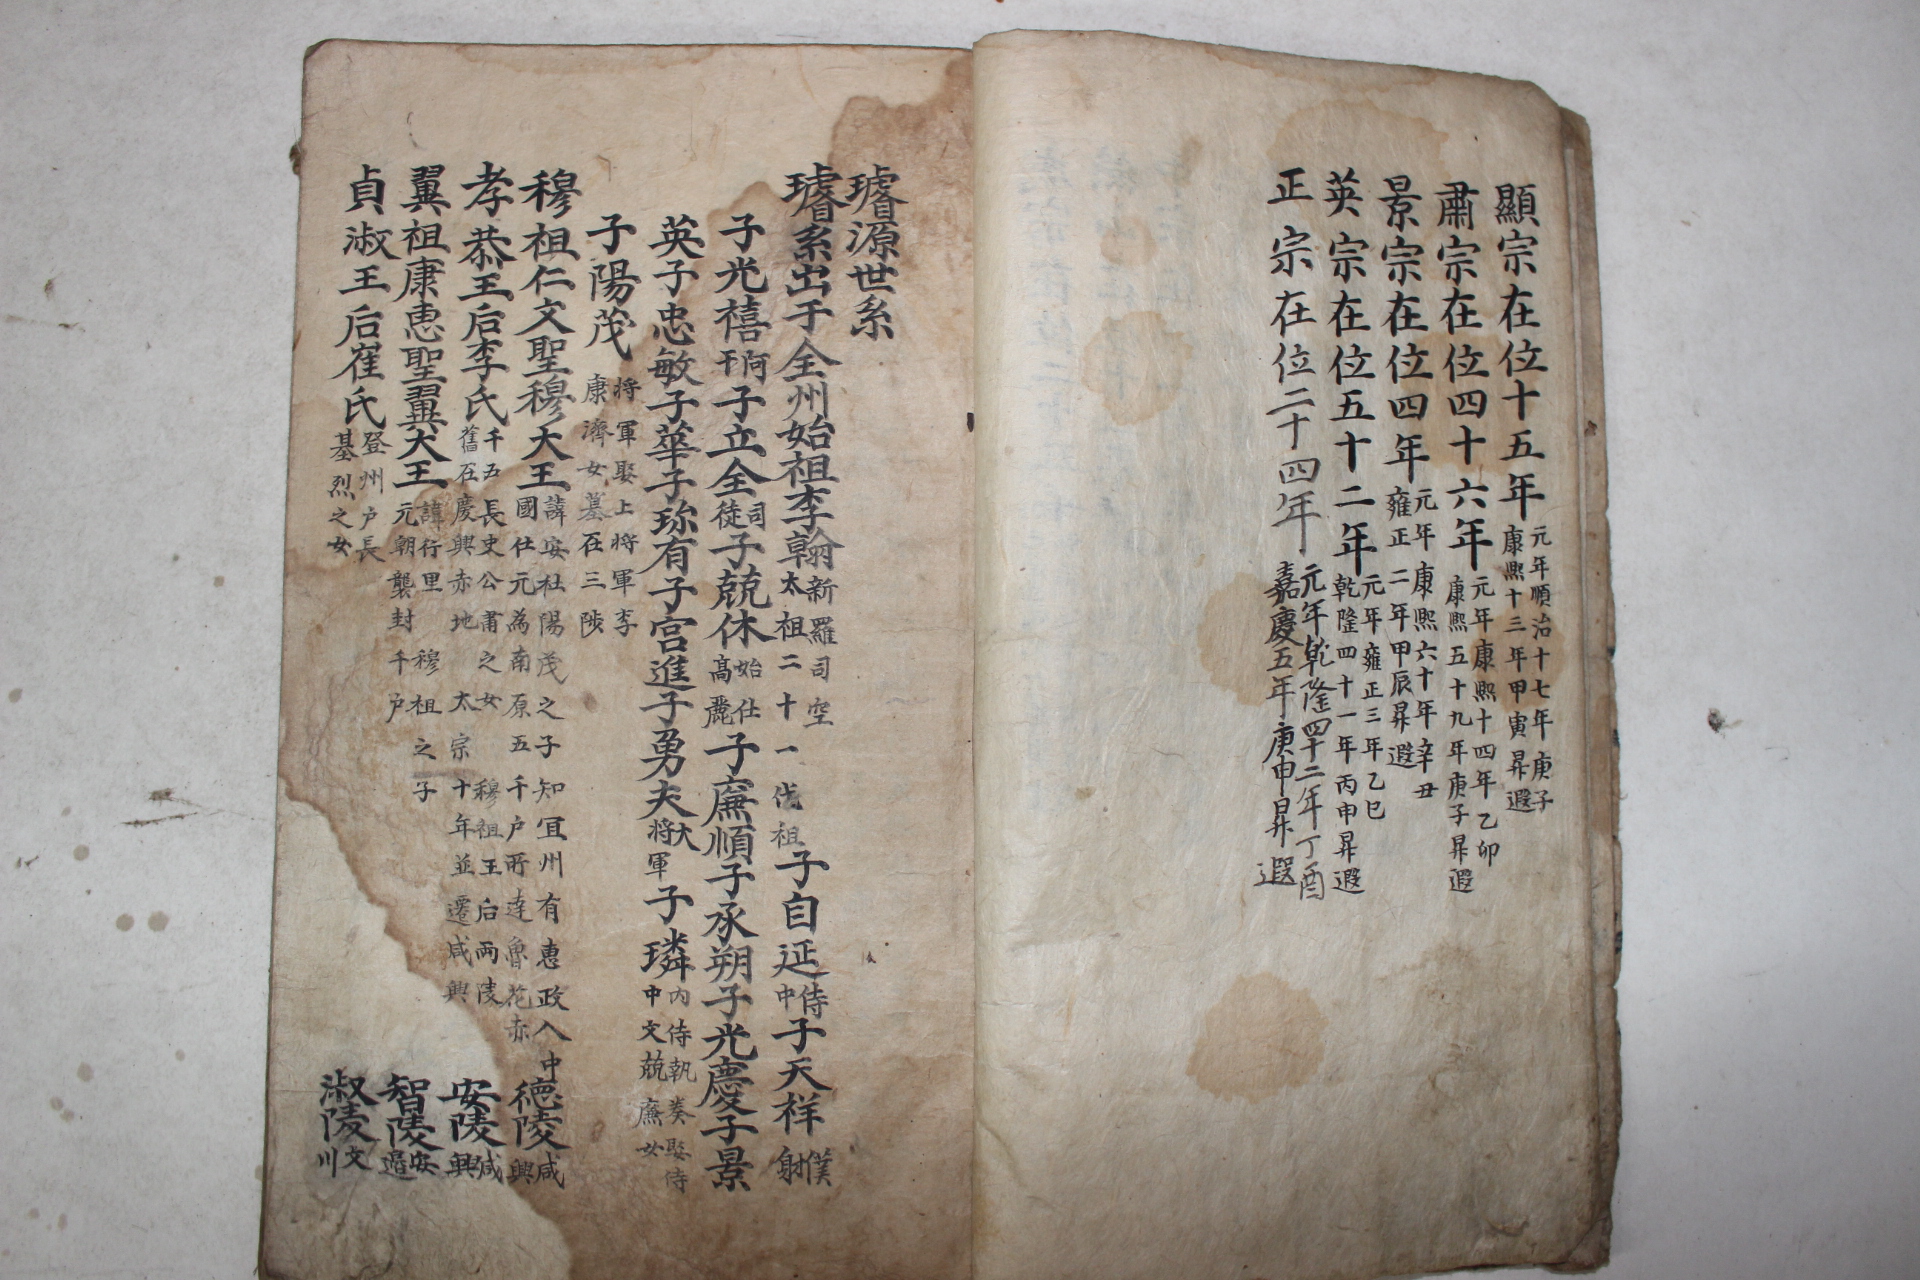 顯宗在位十五年 元年順治十七年庚子 康熙十三年甲寅昇遐
肅宗在位四十六年 元年康熙十四年乙卯 康熙五十九年庚子昇遐
景宗在位四年 元年康熙六十年辛丑 雍正二年甲辰昇遐
英宗在位五十二年 元年雍正三年乙巳 乾隆四十一年丙申昇遐
正宗在位二十四年 元年乾隆四十二年丁酉 嘉慶五年庚申昇遐
璿源世系
璿系出于全州始祖李翰 新羅司空 太祖二十一代祖 子自延 侍中 子天祥 僕射
子光禧 阿干 子立全 司徒 子兢休 始仕高麗 子廉順子承朔子光慶子景
英子忠敏子華子珎有子宮進子勇夫 大將軍 子璘 內侍執奏娶侍中文兢廉女
子陽茂 將軍娶上將軍李康濟女墓在三陟
穆祖仁文聖穆大王 諱安社陽茂之子知冝州有惠政入中國仕元為南原五千戶所達魯花赤 德陵 咸興
孝恭王后李氏 千五長史公肅之女 穆祖王后兩陵舊在慶興赤地 太宗十年並遷咸興 安陵 咸興
翼祖康惠聖翼大王 諱行里 穆祖之子元朝襲封千戶 智陵 安邊
貞淑王后崔氏 登州戶長基烈之女 淑陵 文川